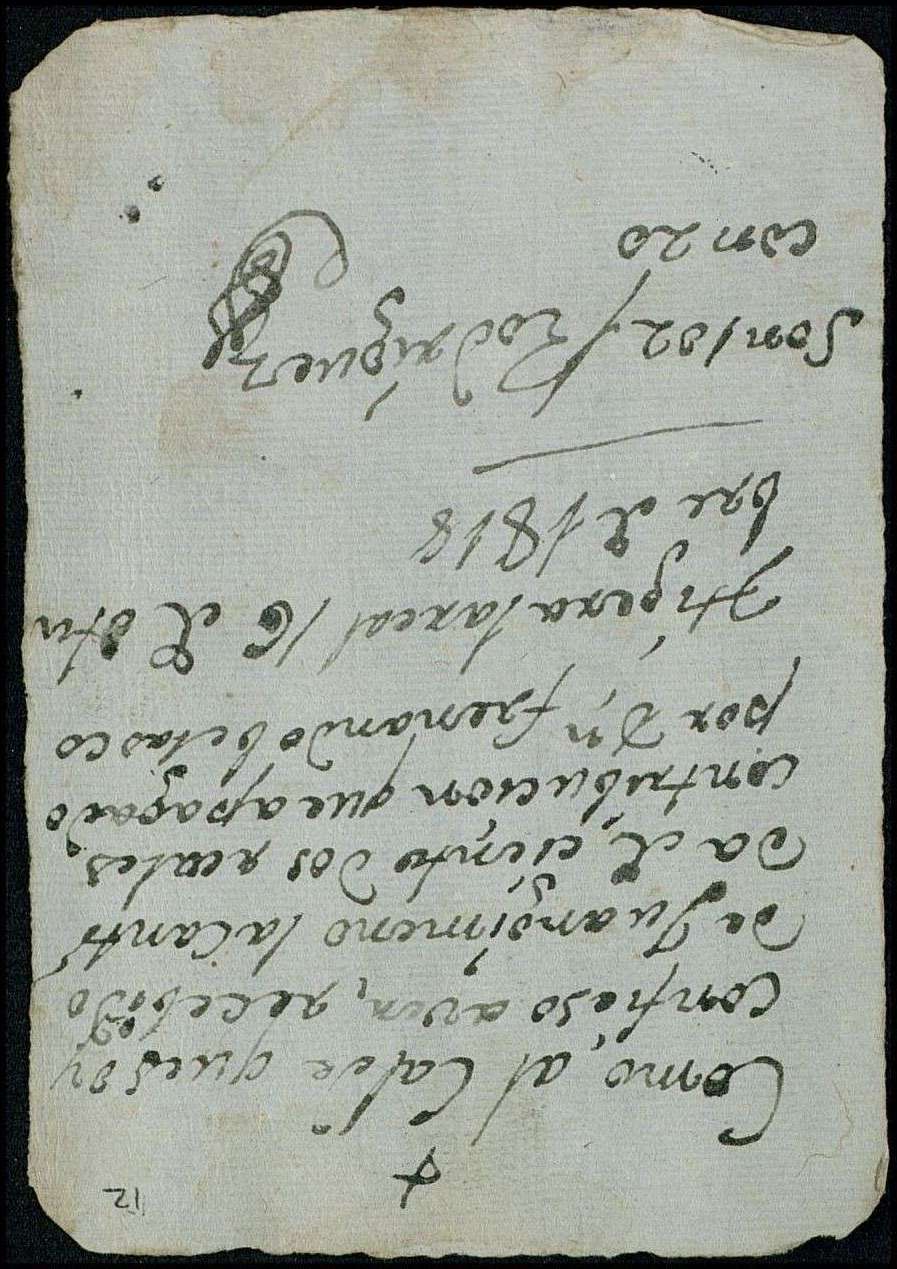 12
+
Como, al Calde que soy
confieso aver, recebido
de Juan ximeno la Canti
da d, ciento dos reales
contribucion que apagado
por Dn, frenando belasco
Higera la real 16 d Otu
bre d 1818
Son 102 / Rodriguez
con 20